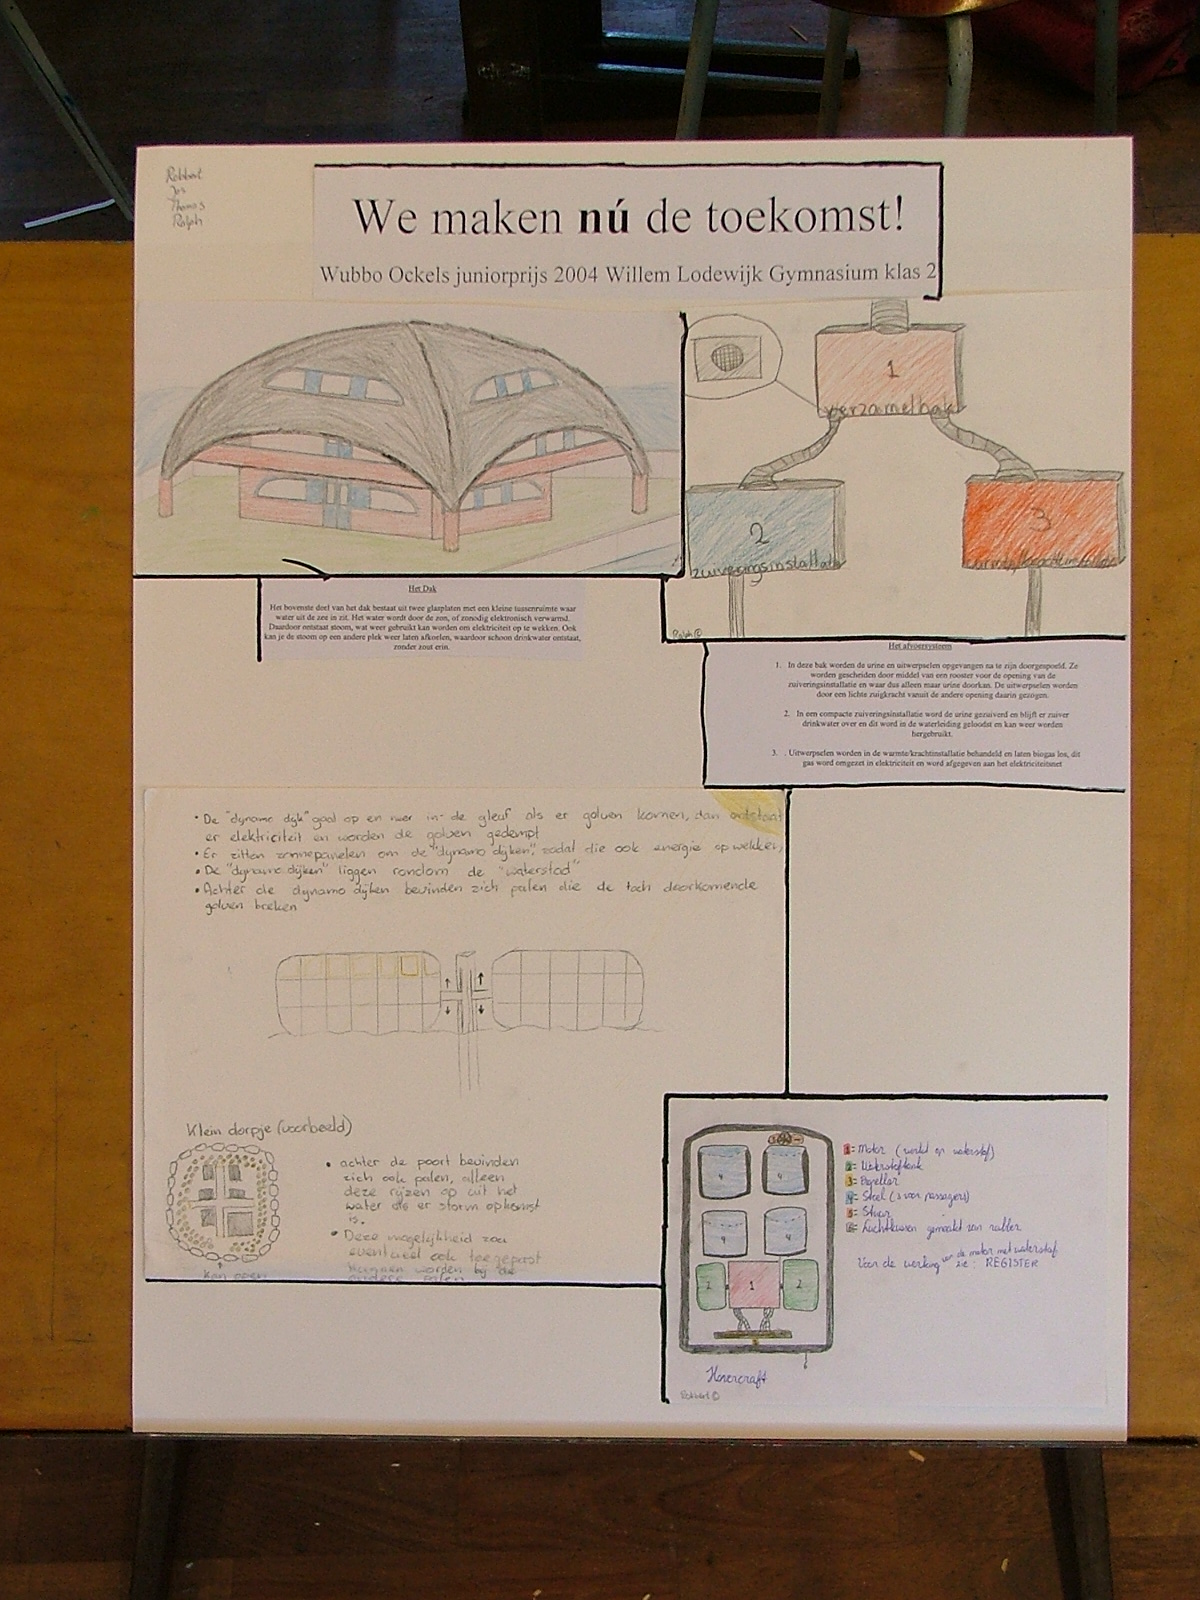 Robbert
Jos
Thomas
Ralph
We maken nú de toekomst!
Wubbo Ockels juniorprijs 2004 Willem Lodewijk Gymnasium klas 2
1
verzamelbak
2
zuiveringsinstallatie
3
Ralph ©
Het Dak
Het bovenste deel van het dak bestaat uit twee glasplaten met een kleine tussenruimte waar
water uit de zee in zit. Het water wordt door de zon, of zonodig elektronisch verwarmd.
Daardoor ontstaat stoom, wat weer gebruikt kan worden om elektriciteit op te wekken. Ook
kan je de stoom op een andere plek weer laten afkoelen, waardoor schoon drinkwater ontstaat,
zonder zout erin.
Het afvoersysteem
1. In deze bak worden de urine en uitwerpselen opgevangen na te zijn doorgespoeld. Ze
worden gescheiden door middel van een rooster voor de opening van de
zuiveringsinstallatie en waar dus alleen maar urine doorkan. De uitwerpselen worden
door een lichte zuigkracht vanuit de andere opening daarin gezogen.
2. In een compacte zuiveringsinstallatie word de urine gezuiverd en blijft er zuiver
drinkwater over en dit word in de waterleiding geloosd en kan weer worden
hergebruikt.
3. . Uitwerpselen worden in de warmte/krachtinstallatie behandeld en laten biogas los, dit
gas word omgezet in elektriciteit en word afgegeven aan het elektriciteitsnet
• De "dynamo dijk" gaat op en neer in de gleuf als er golven komen, dan ontstaat
er elektriciteit en worden de golven gedempt
• Er zitten zonnepanelen om de "dynamo dijken", zodat die ook energie opwekken,
• De "dynamo dijken" liggen rondom de "waterstad"
• Achter de dynamo dijken bevinden zich palen die de toch doorkomende
golven breken
Klein dorpje (voorbeeld)
kan open
• achter de poort bevinden
zich ook palen, alleen
deze rijzen op uit het
water als er storm opkomst
is.
• Deze mogelijkheid zou
eventueel ook toegepast
kunnen worden bij de
andere palen
4
4
4
4
2
1
2
3
6
Hovercraft
Robbert ©
1= Motor (werkt op waterstof)
2= Waterstoftank
3= Propellor
4= Stoel (3 voor passagiers)
5= Stuur
6= Luchtkussen gemaakt van rubber
Voor de werking van de motor met waterstof
zie: REGISTER